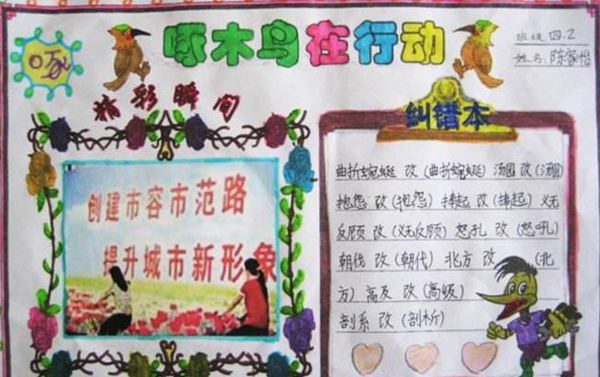 啄木鸟在行动
班级 四.2
姓名: 陈
精彩瞬间
创建市容市范路
提升城市新形象
纠错本
曲折蜿蜒 改 (曲折蜿蜒) 汤圆 改 (汤圆
抱怨 改 (抱怨) 捧起 改 (捧起) 义无
反顾 改 (义无反顾) 怒孔 改 (怒吼)
朝伐 改 (朝代) 北方 改 (北
方) 高友 改 (高级)
剖系 改 (剖析)